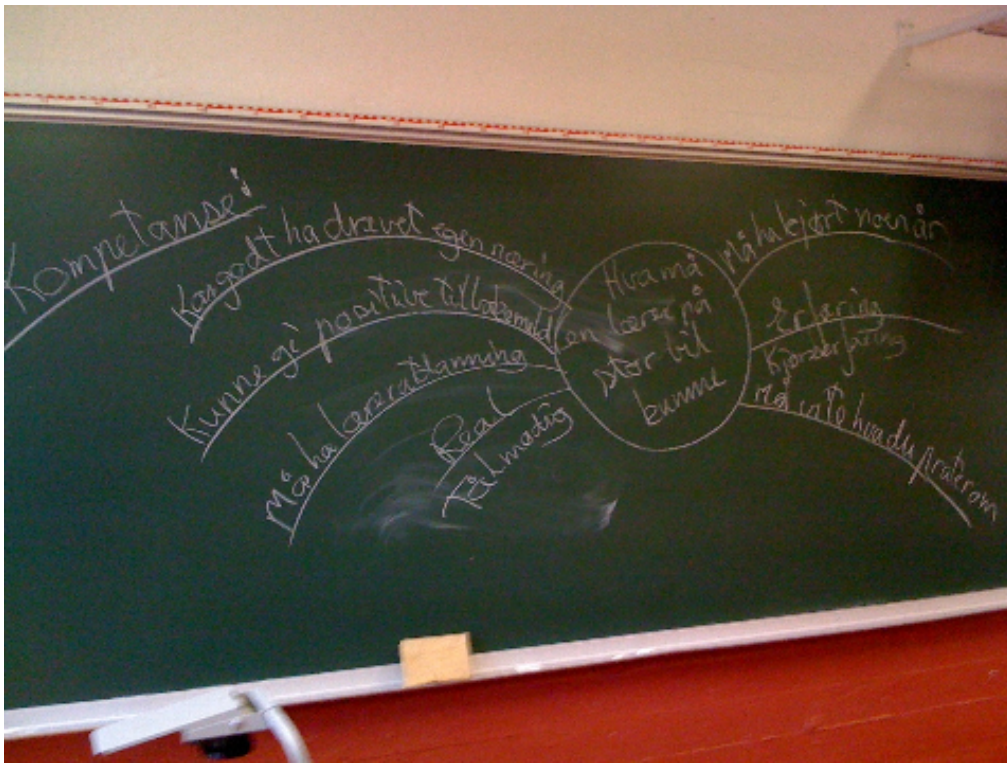 Kompetanse:
Kan godt ha drevet egen næring
Kunne gi positive
Må ha lærerutdanning
Real
Tålmodig
Hva må
en lærer på
stor bil
kunne
Må ha kjørt noen år
Erfaring
Kjøreerfaring
Må vite hva du prater om